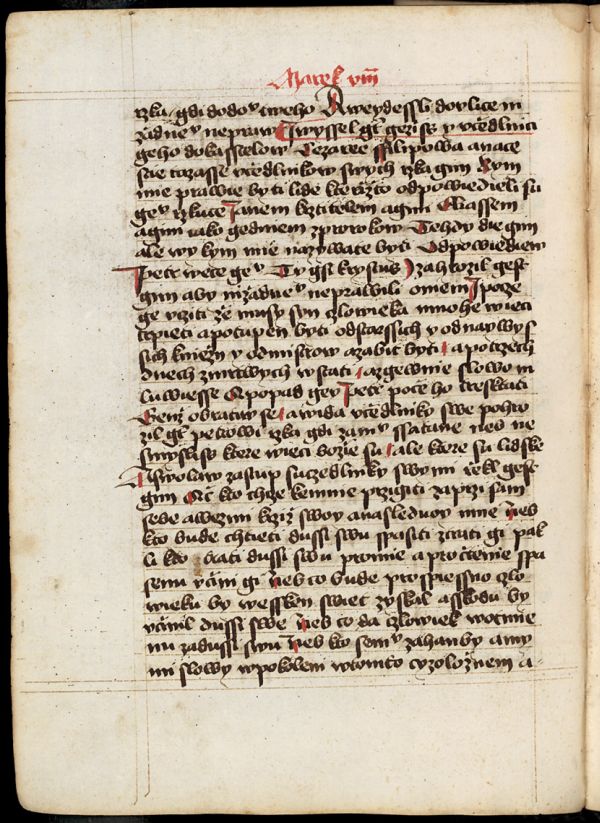 Marek viii
rzka / gdi dodoᵛ tweho A weydessli dovlice ni
zadneᵛ neprav Iwyssel gt gezis y vcedlnici
geho do kasstelow Cezaree ffilipowa a na ce
stie tazasse vcedlnikow swych rzka gim Kym
mie prawie byti lide kterizto odpowiedieli su
geᵛ rzkuce Janem krztitelem a gini Eliassem
a gini iako gedniem z prorokow Tehdy die gim
ale wy kym mie nazywate byti Odpowiediew
Petr wece geᵛ Ty gsi krystus I zahrozil gest
gim aby nizadneᵛ neprawili o niem I pocze
ge vciti ze musy syn czlowieka mnohe wieci
trpieti a potupen byti od starssich y od naywys
sich kniezi y od mistrow a zabit byti a po trzech
dnech z mrtwych wstati a zgewnie slowo m
luwiesse A popad geg Petr poce ho tresktati
Genz obratiw se a wida vcedlniky swe pohro
zil gt petrowi rzka gdi za mᵛ ssatane neb ne
smyslis ktere wieci bozie su ale ktere su lidske
A swolaw zastup s uczedlniky swymi rekl gest
gim Ac kto chce ke mnie przigiti zaprzi sam
sebe a wezmi krziz swoy a nasleduoy mne neb
kto bude chtieti dussi swu spasiti ztrati gi pak
li kto ztrati dussi swu pro mie a pro ctenie spa
senu vcini gi neb co bude prospiessno czlo
wieku by wessken swiet zyskal a sskodu by
vcinil dussi swe neb co da czlowiek wotmie
nu za dussi swu neb kto se mᵛ zahanby a my
mi slowy w pokolení wtomto cyzoloznem a